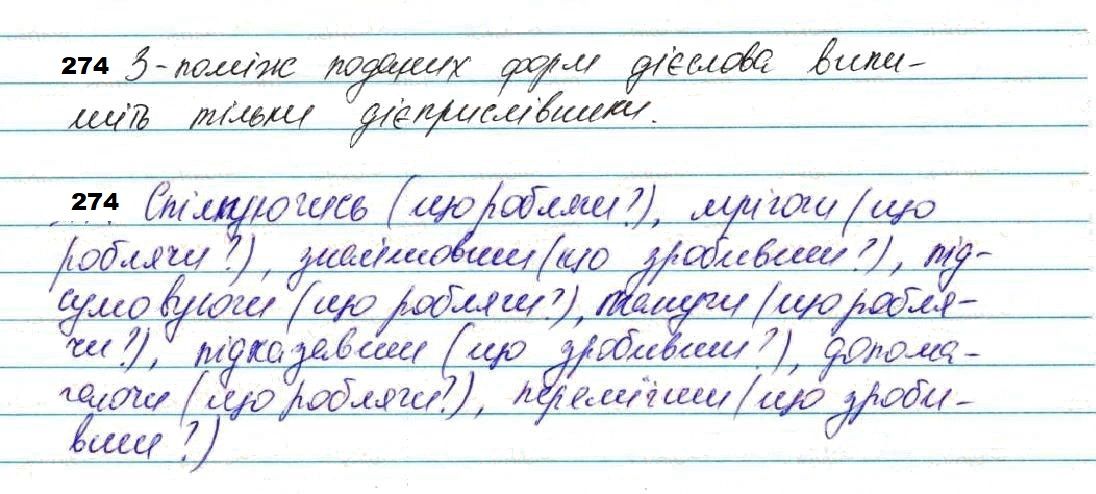 274 З-поміж поданих форм дієслова випи-
шіть тільки дієприслівники.
274 Спілкуючись (що роблячи?), мріючи (що
роблячи?), знайшовши (що зробивши?), під-
сумовуючи (що роблячи?), пишучи (що робля-
чи?), підказавши (що зробивши?), допома-
гаючи (що роблячи?), перемігши (що зроби-
вши?)